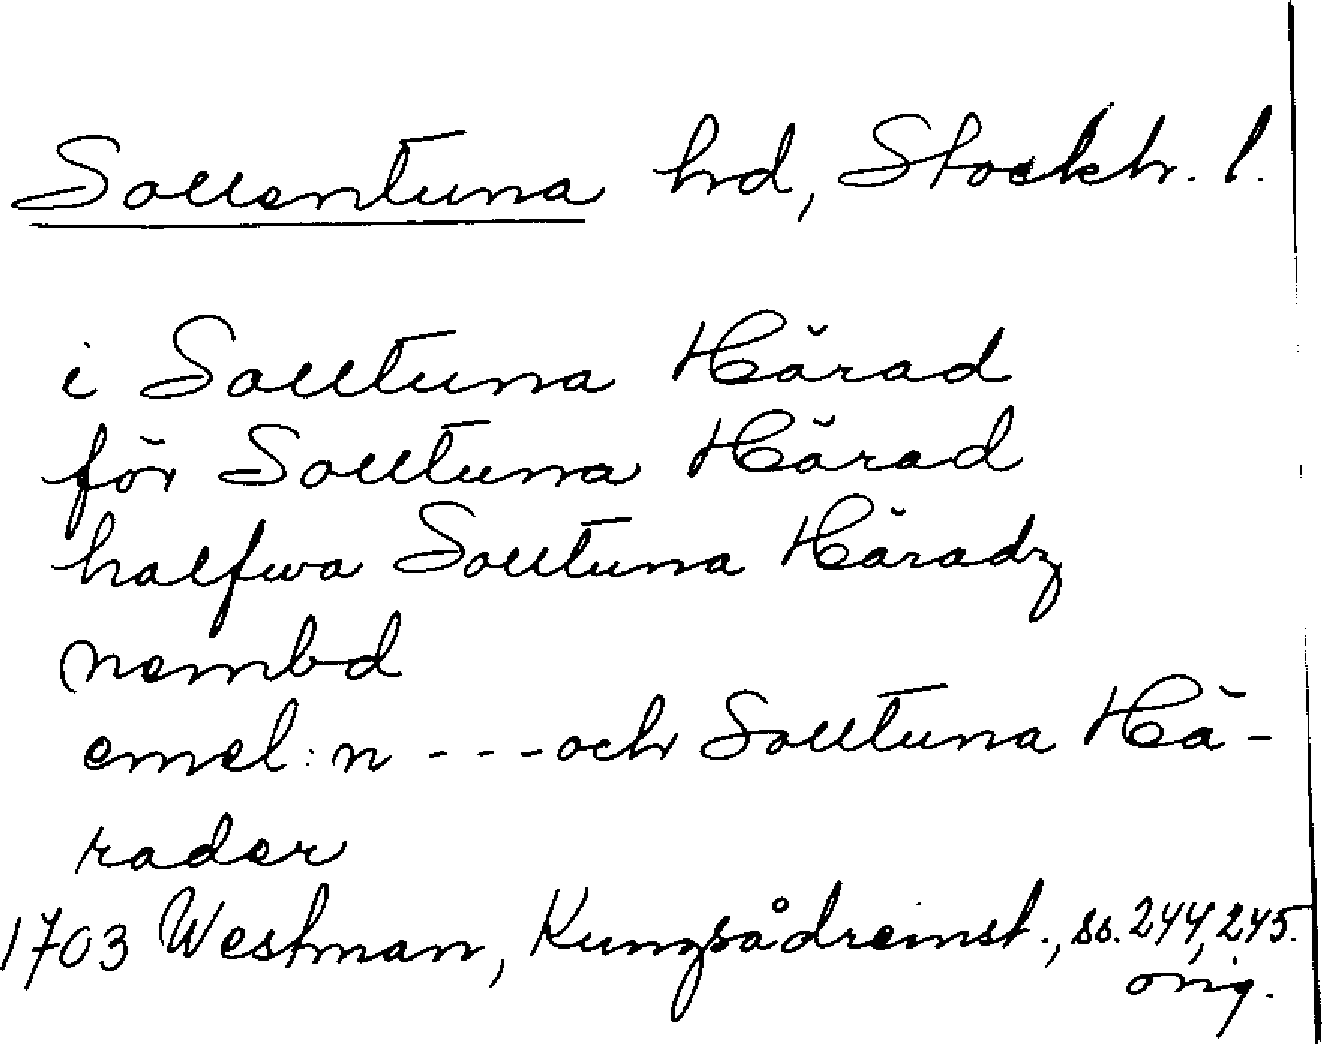 Sollentuna hrd, Stockh. l.
i Solltuna Härad
för Solltuna Härad
halfwa Solltuna Häradz
nembd
emel:n - - - och Solltuna Hä-
rader
1703 Westman, Kungsådreinst., ss. 244, 245.
orig.